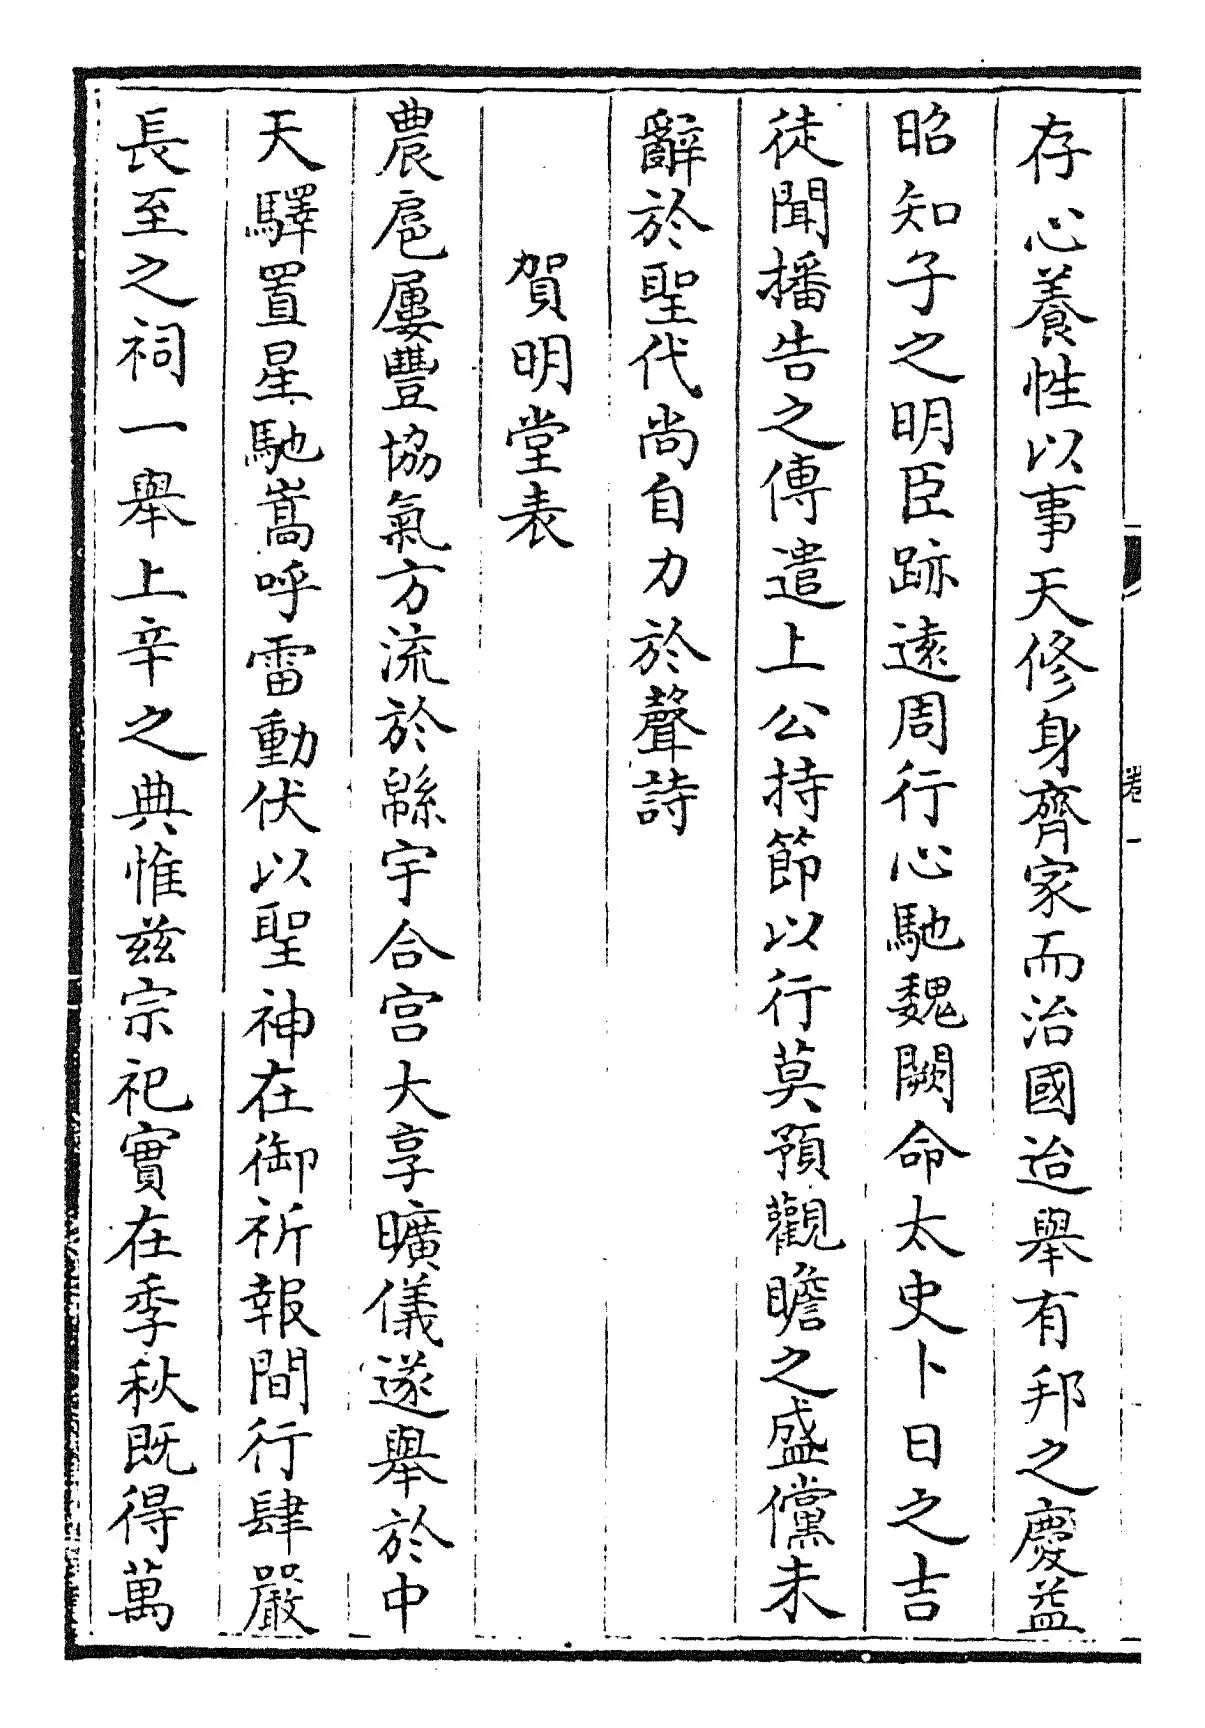 卷一
存心養性以事天修身齊家而治國迨舉有邦之慶益
昭知子之明臣跡遠周行心馳魏闕命太史卜日之吉
徒聞播告之傳遣上公持節以行莫預觀瞻之盛儻未
辭於聖代尚自力於聲詩
賀明堂表
農扈屢豐協氣方流於緜宇合宫大享曠儀遂舉於中
天驛置星馳嵩呼雷動伏以聖神在御祈報間行肆嚴
長至之祠一舉上辛之典惟兹宗祀實在季秋既得萬